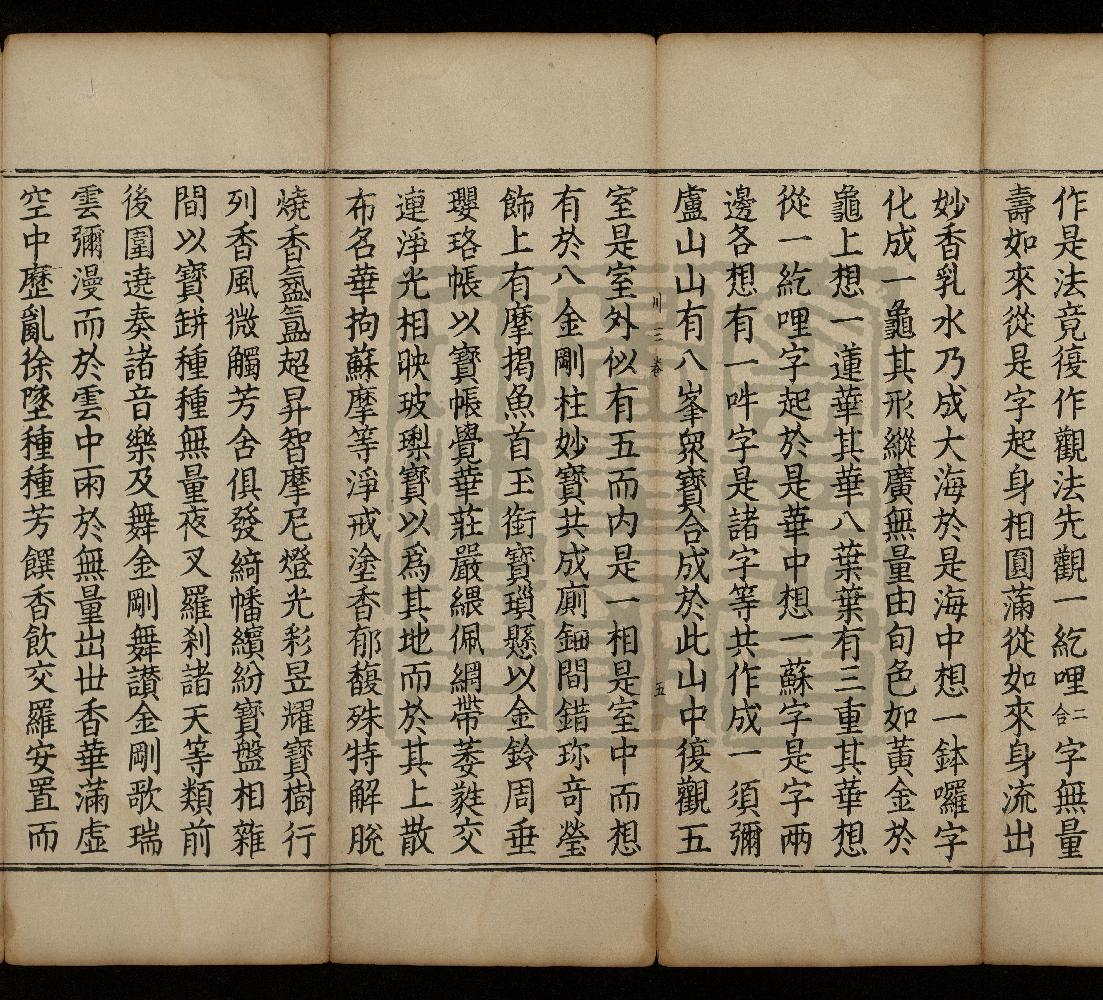 作是法竟復作觀法先觀一紇哩二合字無量
壽如來從是字起身相圓滿從如來身流出
妙香乳水乃成大海於是海中想一鉢囉字
化成一龜其形縱廣無量由旬色如黃金於
龜上想一蓮華其華八葉葉有三重其華想
從一紇哩字起於是華中想一蘇字是字兩
邊各想有一吽字是諸字等共作成一須彌
盧山山有八峯眾寶合成於此山中復觀五
川三卷 五
室是室外似有五而內是一相是室中而想
有於八金剛柱妙寶共成廁鈿間錯珎竒瑩
飾上有摩揭魚首玉銜寶瑣懸以金鈴周垂
瓔珞帳以寶帳覺華莊嚴綴佩網帶萎蕤交
連淨光相映玻瓈寶以為其地而於其上散
布名華拘蘇摩等淨戒塗香郁馥殊特解脫
燒香氳氳超昇智摩尼燈光彩昱耀寶樹行
列香風微觸芳舍俱發綺幡繽紛寶盤相雜
間以寶缾種種無量夜叉羅剎諸天等類前
後圍遶奏諸音樂及舞金剛舞讚金剛歌瑞
雲彌漫而於雲中雨於無量出世香華滿虛
空中歷亂徐墜種種芳饌香飲交羅安置而